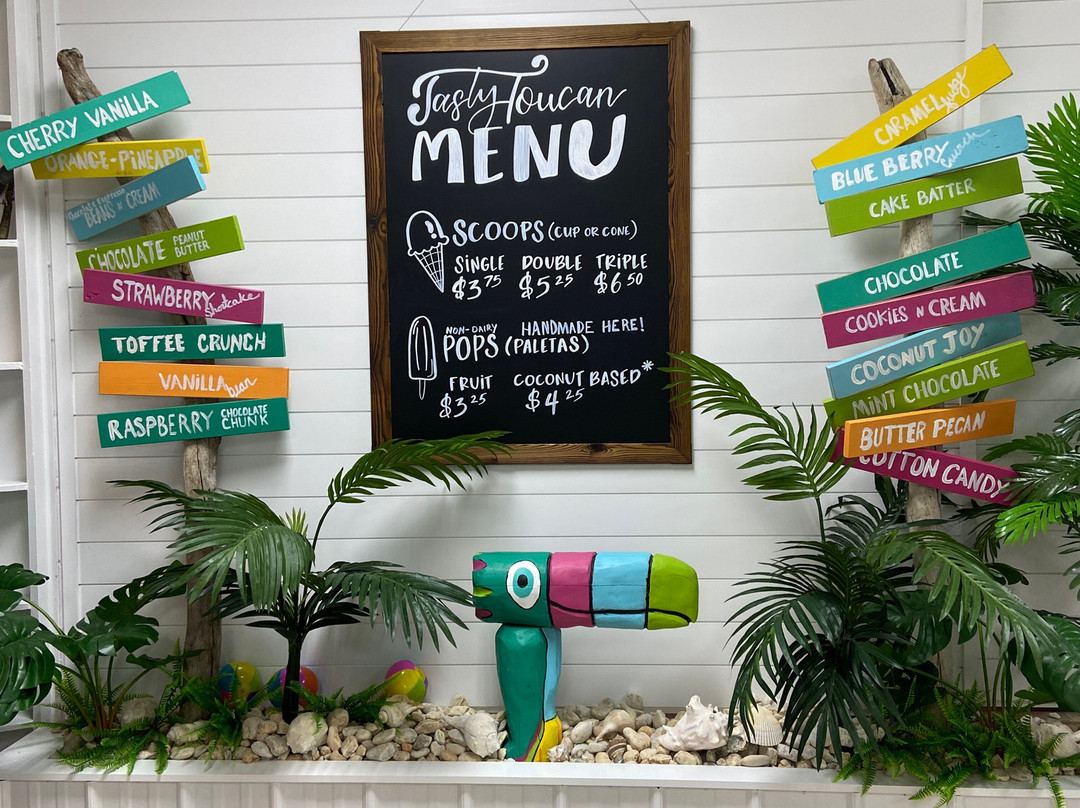 CHERRY VANILLA
ORANGE-PINEAPPLE
Chocolate Espresso
BEANS N CREAM
CHOCOLATE PEANUT
BUTTER
STRAWBERRY Shotcake
TOFFEE CRUNCH
VANILLA bean
RASPBERRY CHOCOLATE
CHUNK
Tasty Toucan
MENU
SCOOPS (CUP OR CONE)
SINGLE DOUBLE TRIPLE
$3 75 $5 25 $6 50
NON-DAIRY HANDMADE HERE!
POPS (PALETAS)
FRUIT COCONUT BASED*
$3 25 $4 25
CARAMEL fudge
BLUE BERRY Crunch
CAKE BATTER
CHOCOLATE
COOKIES N CREAM
COCONUT JOY
MINT CHOCOLATE
BUTTER PECAN
COTTON CANDY